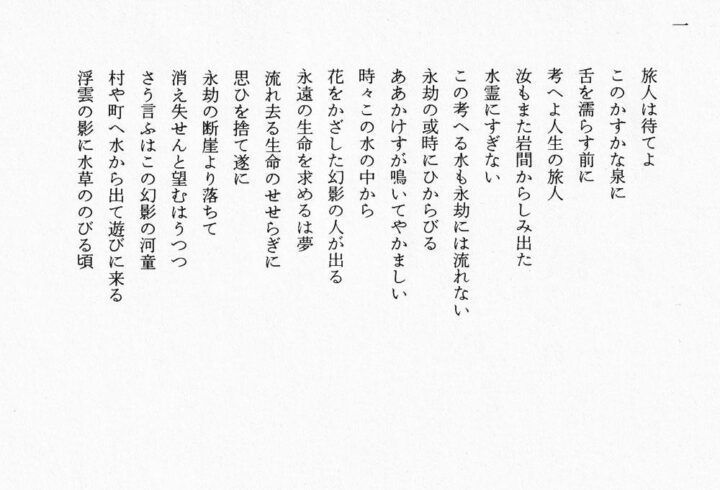 一
旅人は待てよ
このかすかな泉に
舌を濡らす前に
考へよ人生の旅人
汝もまた岩間からしみ出た
水霊にすぎない
この考へる水も永劫には流れない
永劫の或時にひからびる
ああかけすが鳴いてやかましい
時々この水の中から
花をかざした幻影の人が出る
永遠の生命を求めるは夢
流れ去る生命のせせらぎに
思ひを捨て遂に
永劫の断崖より落ちて
消え失せんと望むはうつつ
さう言ふはこの幻影の河童
村や町へ水から出て遊びに来る
浮雲の影に水草ののびる頃